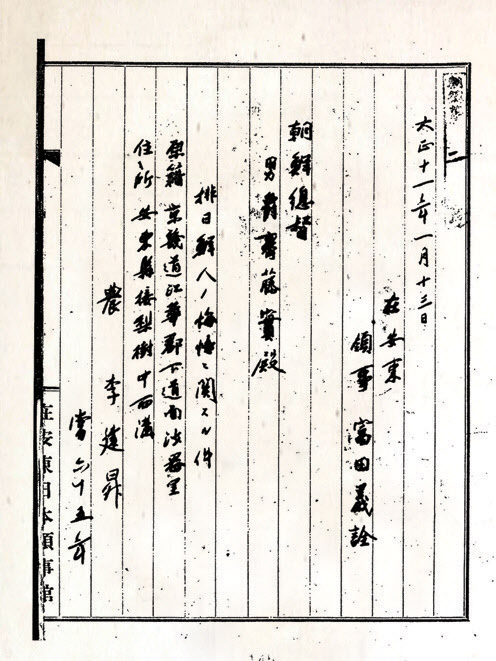 大正十一年一月十三日
在安東
領事 富田義詮
朝鮮總督
男爵齋藤實殿
排日鮮人ノ悔悟ニ関スル件
原籍 京畿道江華郡下道面沙器里
住所 安東縣接梨樹中西溝
農 李建昇
當六十五年
在安東日本領事館